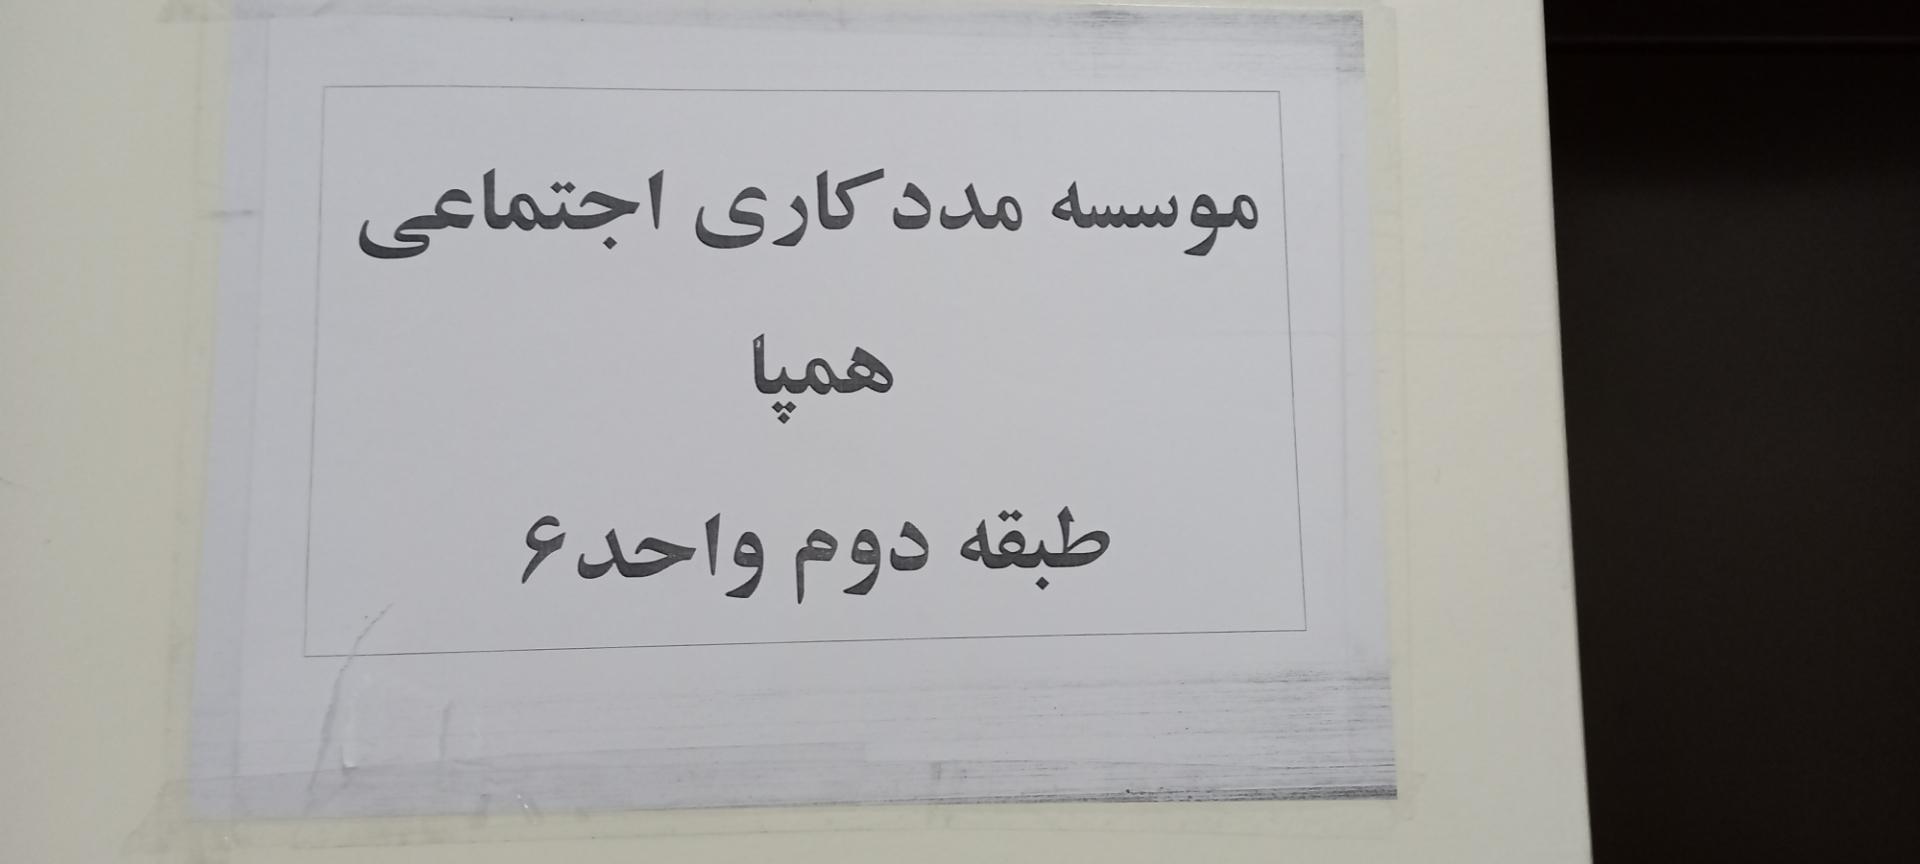 موسسه مددکاری اجتماعی
همپا
طبقه دوم واحد۶